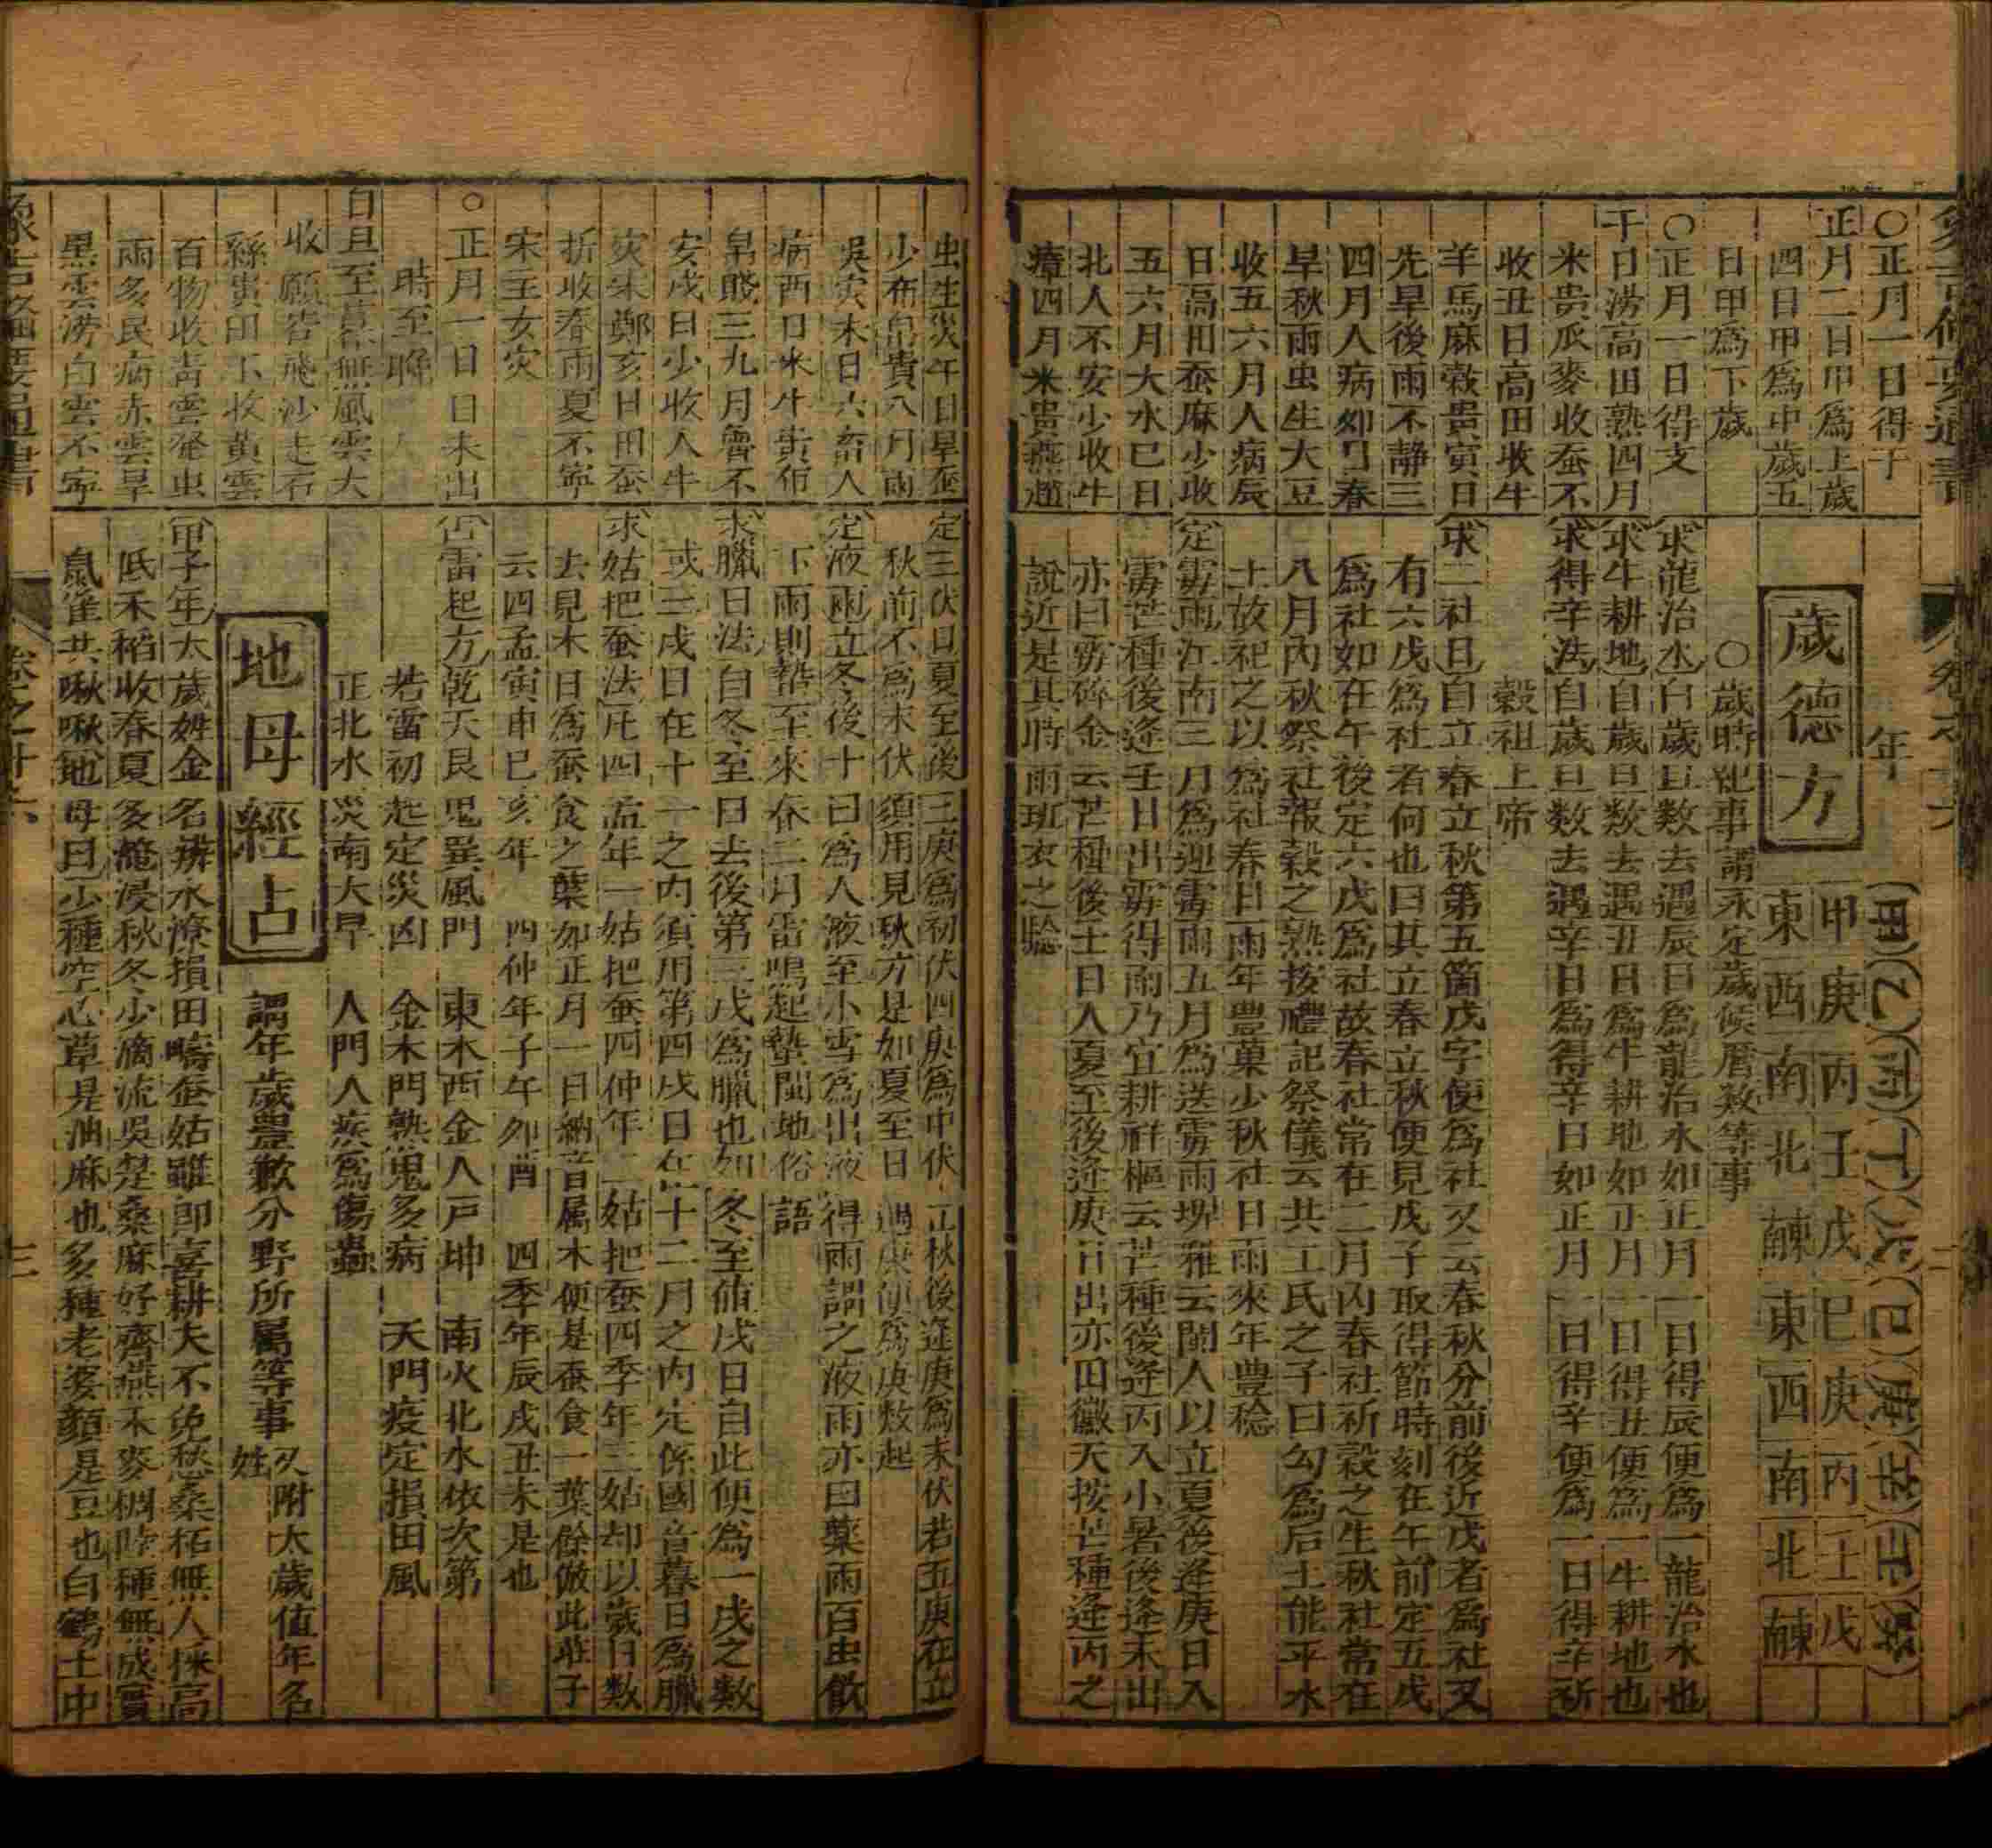 ○正月一日得干
正月二日甲爲上歲
四日甲爲中歲五
日甲爲下歲
○正月一日得支
干日澇高田熟四月
米贵瓜麥收蚕不
收丑日高田收牛
羊馬麻穀贵寅日
先旱後雨不静三
四月人病卯日春
旱秋雨虫生大豆
收五六月人病辰
日高田蚕麻少收
五六月大水巳日
北人不安少收牛
瘴四月米贵燕趙
年
(甲)(乙)(丙)(丁)(戊)(己)(庚)(辛)(壬)(癸)
歲德方
甲庚丙壬戊巳庚丙壬戊
東西南北𠅤東西南北𠅤
○歲時紀事謂永定歲候曆数等事
(求龍治水)自歲旦数去遇辰日爲龍治水如正月一日得辰便爲一龍治水也
(求牛耕地)自歲旦数去遇丑日爲牛耕地如正月一日得丑便爲一牛耕地也
(求得辛法)自歲旦数去遇辛日爲得辛日如正月一日得辛便爲一日得辛祈
穀祖上帝
(求二社日)自立春立秋第五箇戊字便爲社又云春秋分前後近戊者爲社又
有六戊爲社者何也曰其立春立秋便見戊子取得節時刻在午前定五戊
爲社如在午後定六戊爲社故春社常在二月内春社祈穀之生秋社常在
八月内秋祭社報穀之熟按禮記祭儀云共工氏之子曰勾爲后土能平水
土故祀之以爲社春日雨年豊菓少秋社日雨來年豊稔
(定霉雨)江南三月爲迎霉雨五月爲送霉雨埤雅云閩人以立夏後逢庚日入
霉芒種後逢壬日出霉得雨乃宜耕祥樞云芒種後逢丙入小暑後逢未出
亦曰霉碎金云芒種後壬日入夏至後逢庚日出亦曰黴天按芒種逢丙之
說近是其時雨班衣之驗
虫生災午日旱蚕
少布帛貴八月雨
吳灾未日六畜人
病酉日米牛贵布
帛賤三九月魯不
安戌日少收人牛
灾朱鄭亥日田蚕
折收春雨夏不寧
宋主女灾
○正月一日日未出
時至晚
白旦至暮無風雲大
收願若飛沙走石
絲贵田不收黄雲
百物收靑雲發虫
雨多民病赤雲旱
黑雲澇白雲不寧
(定三伏日)夏至後三庚爲初伏四庚爲中伏立秋後逢庚爲末伏若五庚在立
秋前不爲末伏須用見秋方是如夏至日遇庚便爲庚数起
(定液雨)立冬後十日爲人液至小雪爲出液得雨謂之液雨亦曰藥雨百虫飮
下雨則蟄至來春二月雷鳴起蟄閩地俗語
(求臘日法)自冬至日去後第三戊爲臘也如冬至値戊日自此便為一戊之數
或三戌日在十一之内須用第四戌日在十二月之内定係國音暮日爲臘
(求姑把蚕法)凡四孟年一姑把蚕四仲年二姑把蚕四季年三姑却以歲日数
去見木日爲蚕食之葉如正月一日納音属木便是蚕食一葉餘倣此莊子
云四孟寅申巳亥年 四仲年子午卯酉 四季年辰戌丑未是也
(占雷起方)乾天艮鬼巽風門 東木西金人戸坤 南火北水依次第
若雷初起定災凶 金木門熟鬼多病 天門疫定損田風
正北水災南大旱 人門人疾爲傷蟲
地母經占
謂年歲豊歉分野所屬等事又附太歲值年名姓
(甲子年)太歲姓金名辨水潦損田疇蚕姑雖即喜耕夫不免愁桑柘無人採高
低禾稻收春夏多淹浸秋冬少滴流吳楚桑麻好齊燕禾麥稠陸種無成實
鼠雀共啾啾(地母曰)少種空心草是油麻也多種老婆顔是豆也白鶴土中
卷之廿六
三